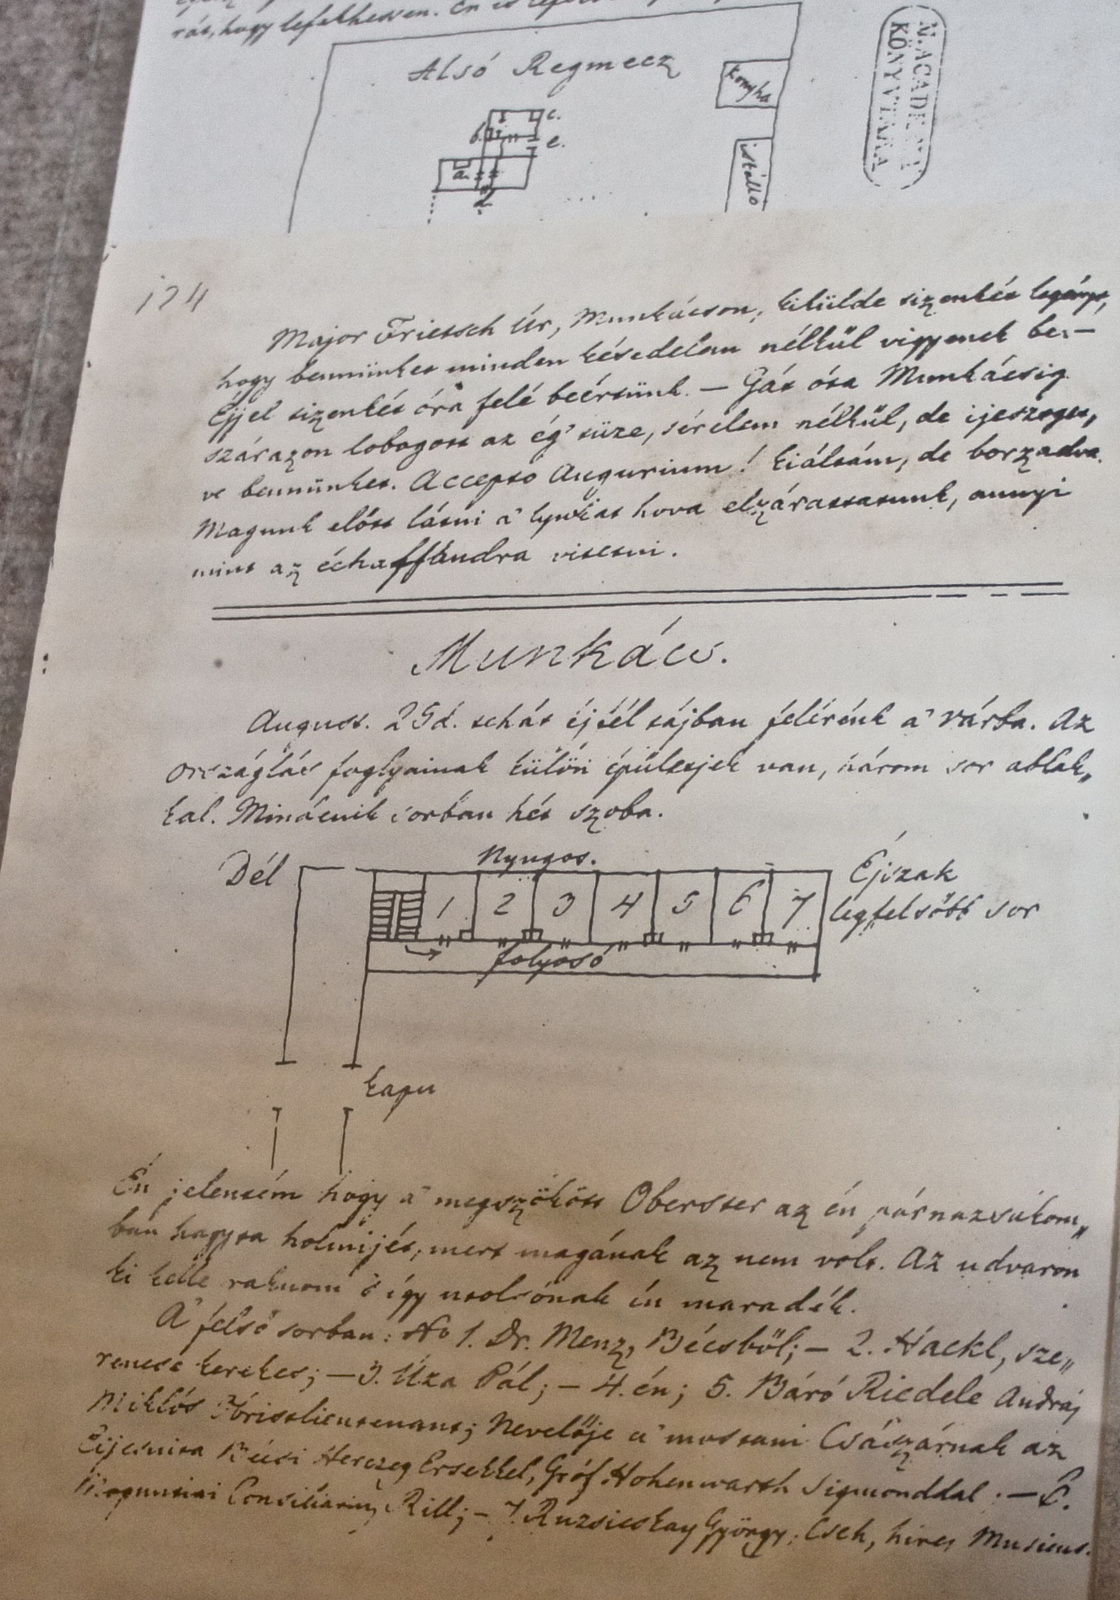 rás, hogy lefekhessen. Én is
Alsó Regmecz
konyha
istálló
a.
b.
c.
d.
e.
M. ACADEMIA
KÖNYVTÁRA
174
Major Frietsch Úr, Munkácson, kikülde tizenkét legényt,
hogy bennünket minden késedelem nélkül vigyenek be.—
Éjjel tizenkét óra felé beértünk. — Gát óta Munkácsig
szárazon lobogott az ég' tüze, sérelem nélkül, de ijesztget„
ve bennünket. Accepto Augurium! kiáltám, de borzadva
Magunk előtt látni a' lyukat hova elzárattatunk, annyi
mint az échaffaudra vitetni.
Munkács.
August. 25d. tehát éjfél tájban felérénk a' várba. Az
országlás' foglyainak külön épületjek van, három sor ablak„
kal. Mindenik sorban hét szoba.
Dél
Nyugot.
Éjszak
legfelsőbb sor
1 2 3 4 5 6 7
folyosó
kapu
Én jelentém hogy a' megszökött Oberster az én párnazsákom„
ban hagyta holmijét, mert magának az nem volt. Az udvaron
ki kelle raknom 's így utolsónak én maradék.
A' felső sorban: No 1. Dr. Menz, Bécsből; — 2. Hackl, sze„
rencse kerekes; — 3. Úza Pál; — 4. én; 5. Báró Riedele András
Miklós Óbristlieutenant; Nevelője a' mostani Császárnak az
Éjjesnita Bécsi Herczeg Érsekkel, Gróf Hohenwarth Sigmonddal; — 6.
Consiliarius Rill; — 7. Ruzsicskay György, Cseh, híres Musicus.